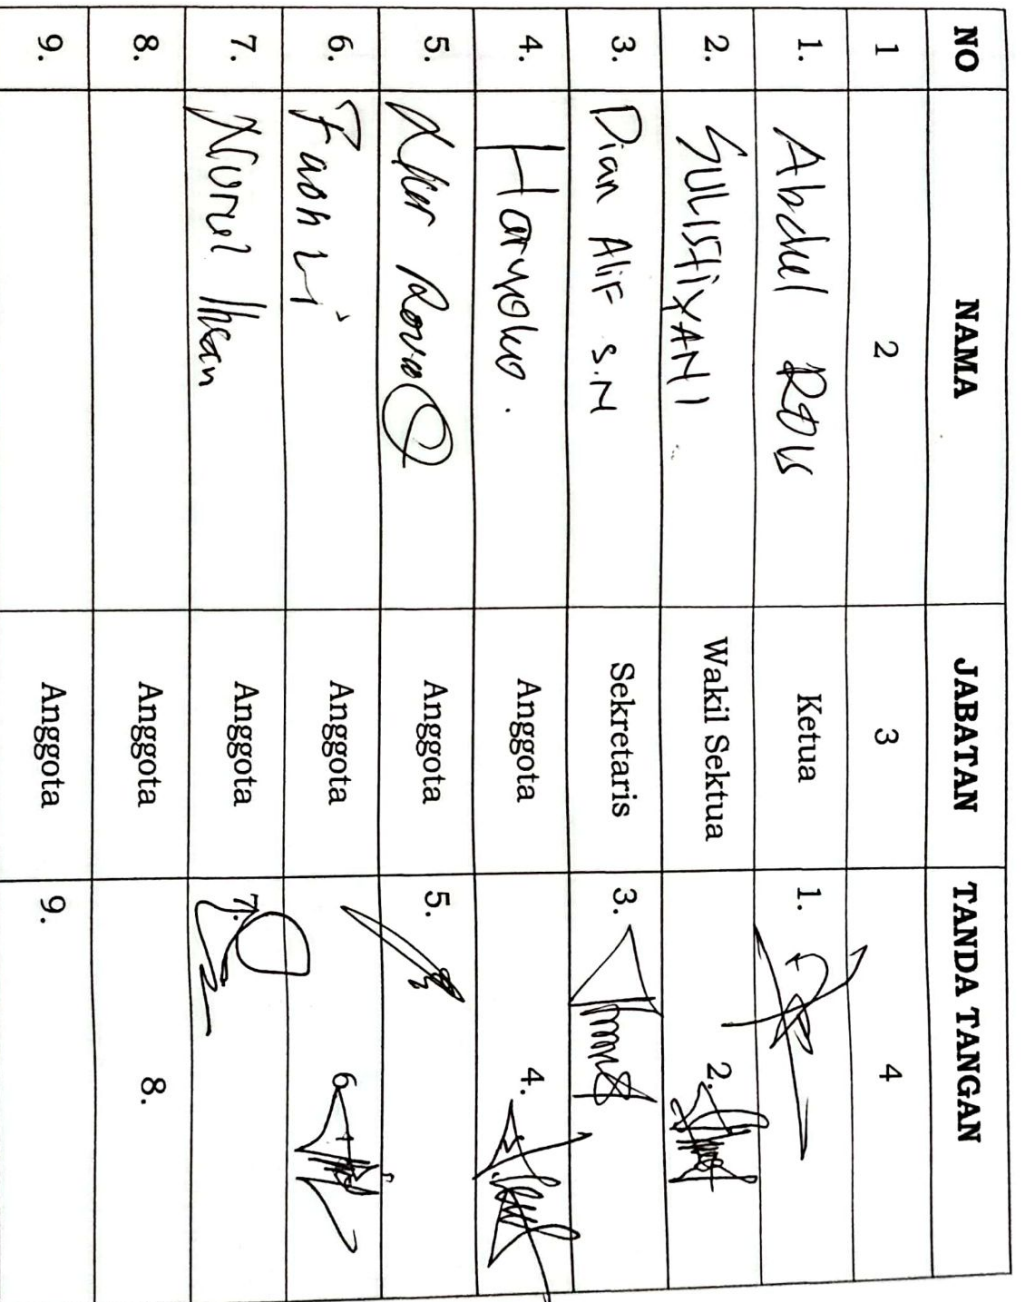 NO NAMA JABATAN TANDA TANGAN
1 2 3 4
1. Abdul Ketua 1.
2. SULISTIYANI Wakil Sektua 2.
3. Dian Alif S.N Sekretaris 3.
4. Haryoko. Anggota 4.
5. Anggota 5.
6. Anggota 6
7. Nurul Ihsan Anggota 7.
8. Anggota 8.
9. Anggota 9.